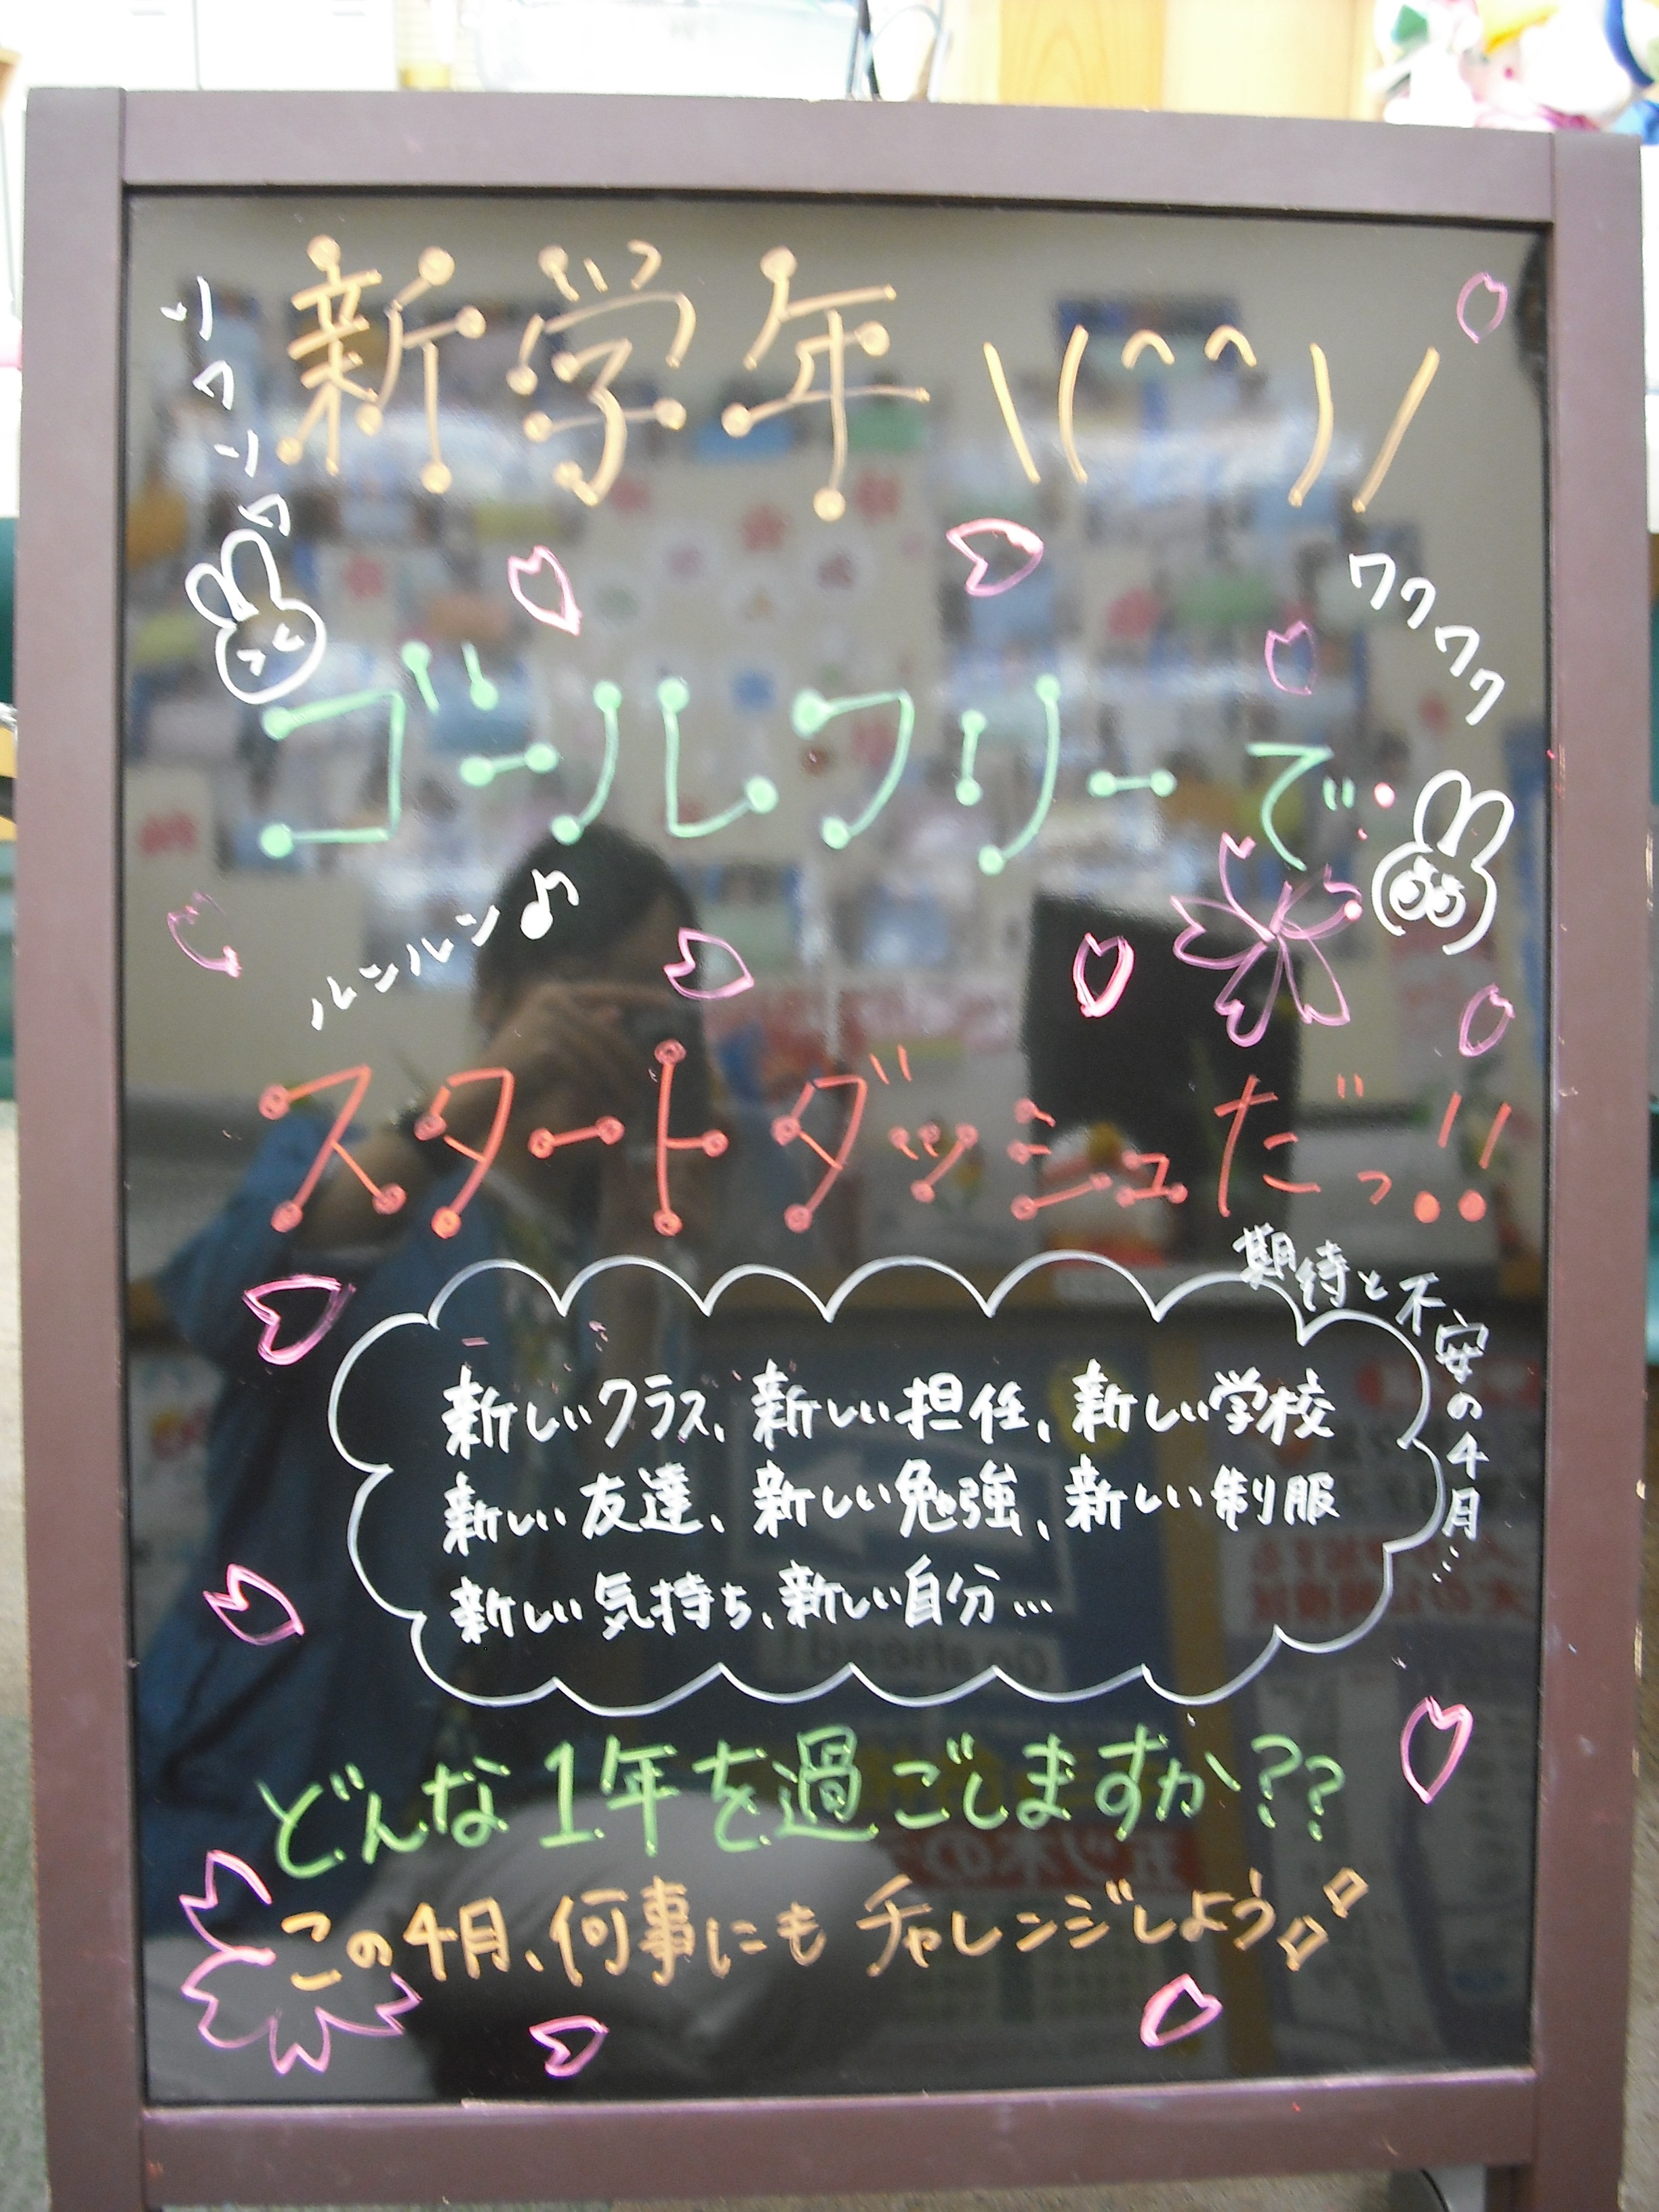 新学年 \(^^)/
ソワソワ
ワクワク
ゴールフリーで
ルンルン♪
スタートダッシュだっ!!
期待と不安の4月…
新しいクラス、新しい担任、新しい学校
新しい友達、新しい勉強、新しい制服
新しい気持ち、新しい自分…
どんな1年を過ごしますか??
この4月、何事にもチャレンジしよう!!